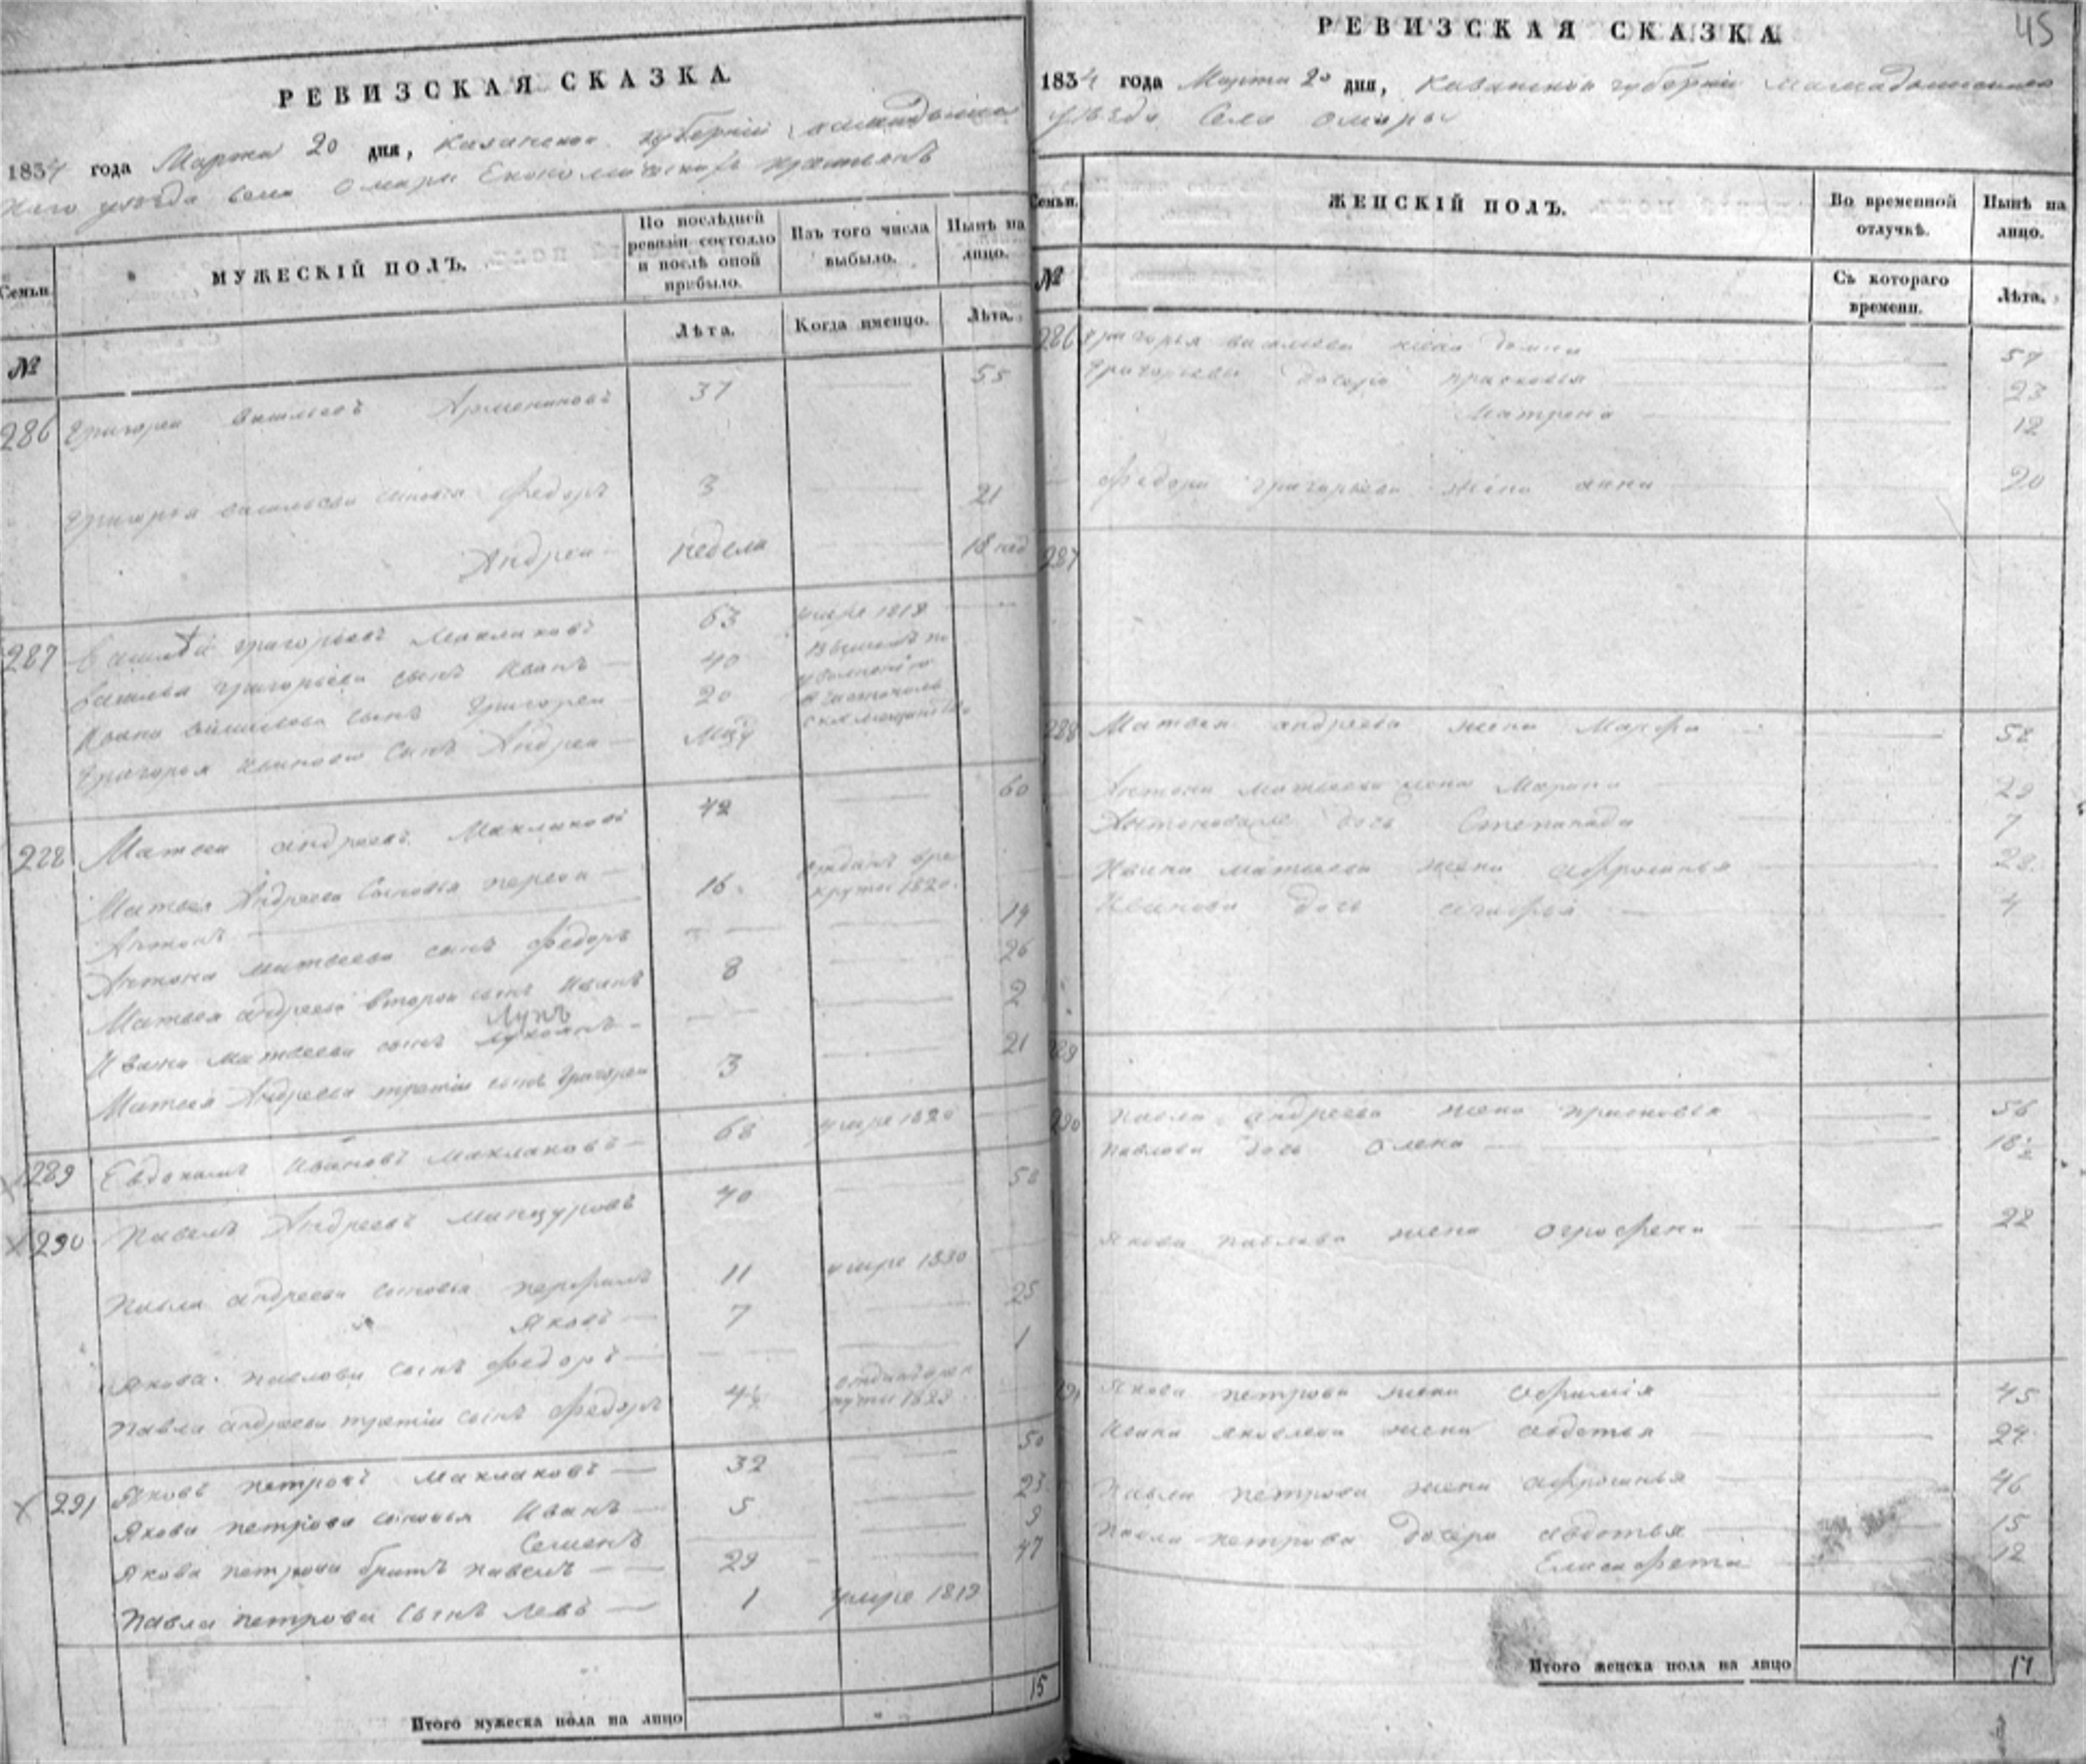 РЕВИЗСКАЯ СКАЗКА
1834 года Марта 20 дня, Казанской губернии Мамадышс
каго уезда села Омары Економическихъ крестьянъ
Семьи.
МУЖЕСКІЙ ПОЛЪ.
По послѣдней ревизіи состояло и послѣ оной прибыло.
Изъ того числа выбыло.
Нынѣ на лицо.
№
Лѣта.
Когда именно.
Лѣта.
286 Григореи Васильевъ 37 55
Григорья Васильева сыновья Федоръ 3 21
Андреи неделя 18 нед
287 Василей Григорьевъ Маклаковъ 63 умре 1818
Васильи Григорьева сынъ Иванъ 40
Ивана Васильева сынъ Григореи 20
Григорья Иванова сынъ Андреи
288 Матвеи Андреевъ Маклаковъ 42 60
Матвея Андреева сыновья перваи
Антонъ 16 отданъ в ре
круты 1820
Антона Матвеева сынъ Федоръ 14
Матвея Андреева второи сынъ Иванъ 8 26
Лупъ
Ивана Матвеева сынъ 2
Матвея Андреева третіи сынъ Григореи 3 21
289 Евдокимъ Ивановъ Маклаковъ 68 умре 1820
290 Павелъ Андреевъ Манцуровъ 40 58
Павла Андреева сыновья 11 умре 1830
Яковъ 7 25
Якова Павлова сынъ Федоръ 1
Павла Андреева третіи сынъ Федоръ
291 Яковъ Петровъ Маклаковъ 32 50
Якова Петрова сыновья Иванъ 5 23
Семенъ 9
Якова Петрова братъ Павелъ 29 47
Павла Петрова сынъ Левъ 1 умре 1819
Итого мужеска пола на лицо 15
45
РЕВИЗСКАЯ СКАЗКА
1834 года Марта 20 дня, Казанской губернии Мамадышскаго
уезда Села Омары
Семьи.
ЖЕНСКІЙ ПОЛЪ.
Во временной отлучкѣ.
Нынѣ на лицо.
№
Съ котораго времени.
Лѣта.
286 Григорья Васильева жена Домна 57
Григорьевы дочери Прасковья 23
Матрена 12
Федора Григорьева жена Анна 20
287
288 Матвея Андреева жена Марфа 58
Антона Матвеева жена Марина 29
дочь Степанида 7
Ивана Матвеева жена Афросинья 28
Иванова дочь 4
289
290 Павла Андреева жена Прасковья 56
Павлова дочь Олена
Якова Павлова жена Огрофена 22
291 Якова Петрова жена 45
Ивана Яковлева жена Авдотья 24
Павла Петрова жена Афросинья 46
Павла Петрова дочери Авдотья 15
Елисафета 12
Итого женска пола на лицо 17